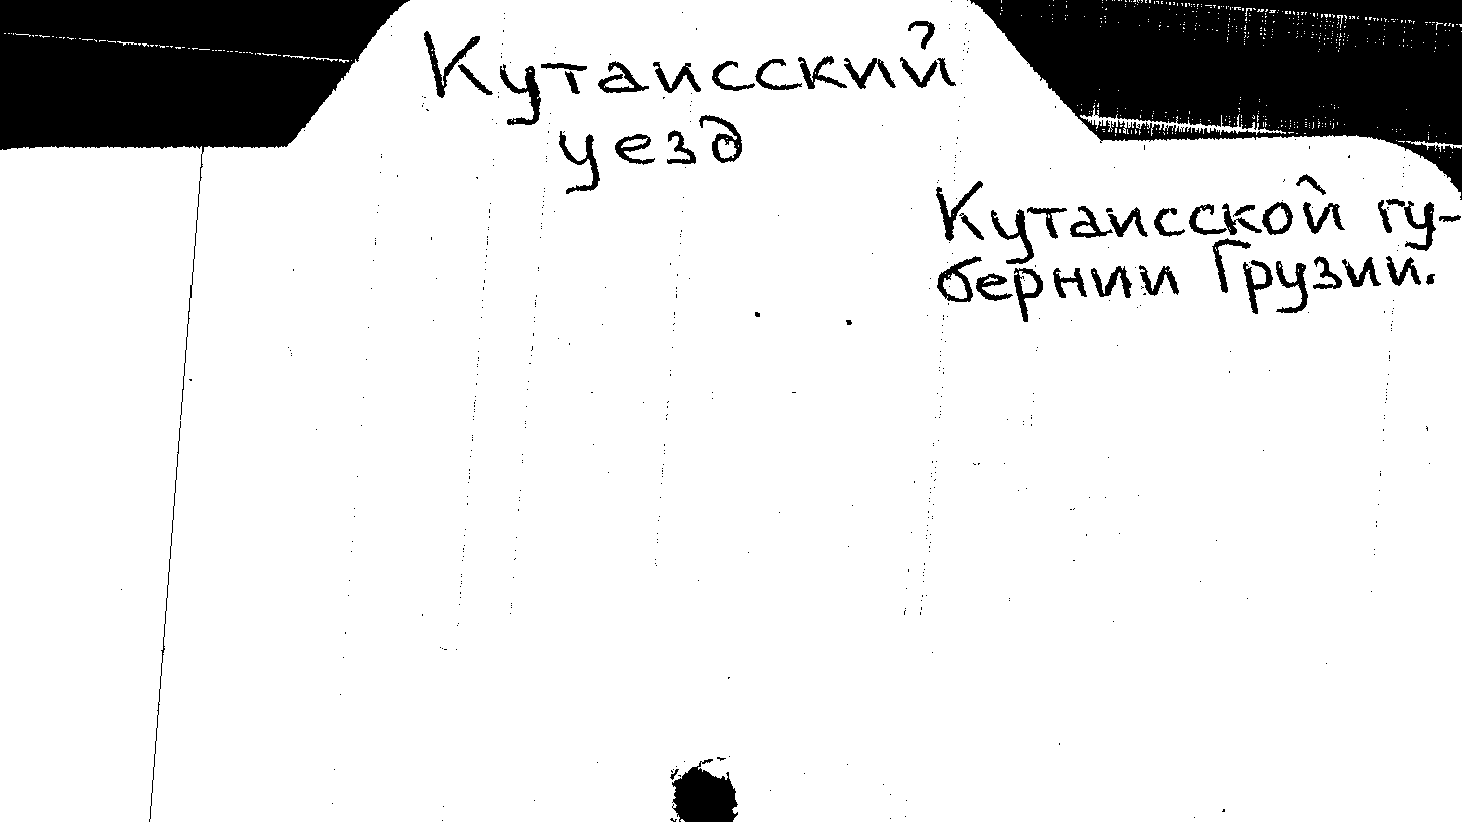 Кутаисский
уезд
Кутаисской гу-
бернии Грузии.